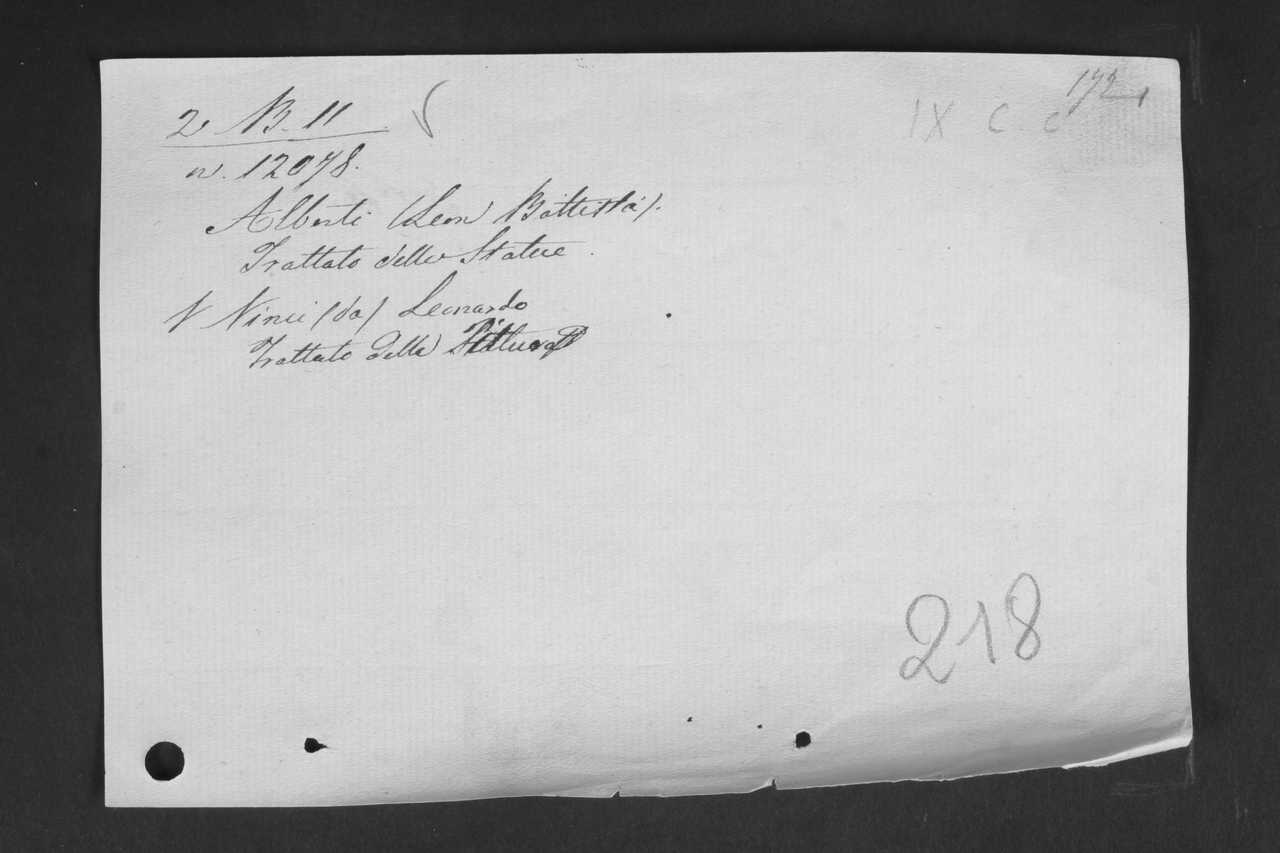 172
IX C C
2 B. 11
n. 12078.
Alberti (Leon Battista).
Trattato delle Statue.
Vinci (da) Leonardo
Trattato della Pittura
218